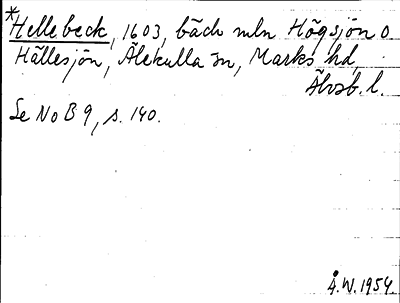 *Hellebeck, 1603, bäck mln Högsjön o
Hällesjön, Älekulla sn, Marks hd,
Älvsb. l.
Se NoB 9, s. 140.
Å.W. 1954.